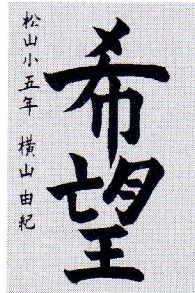 希望
松山小五年 横山由紀